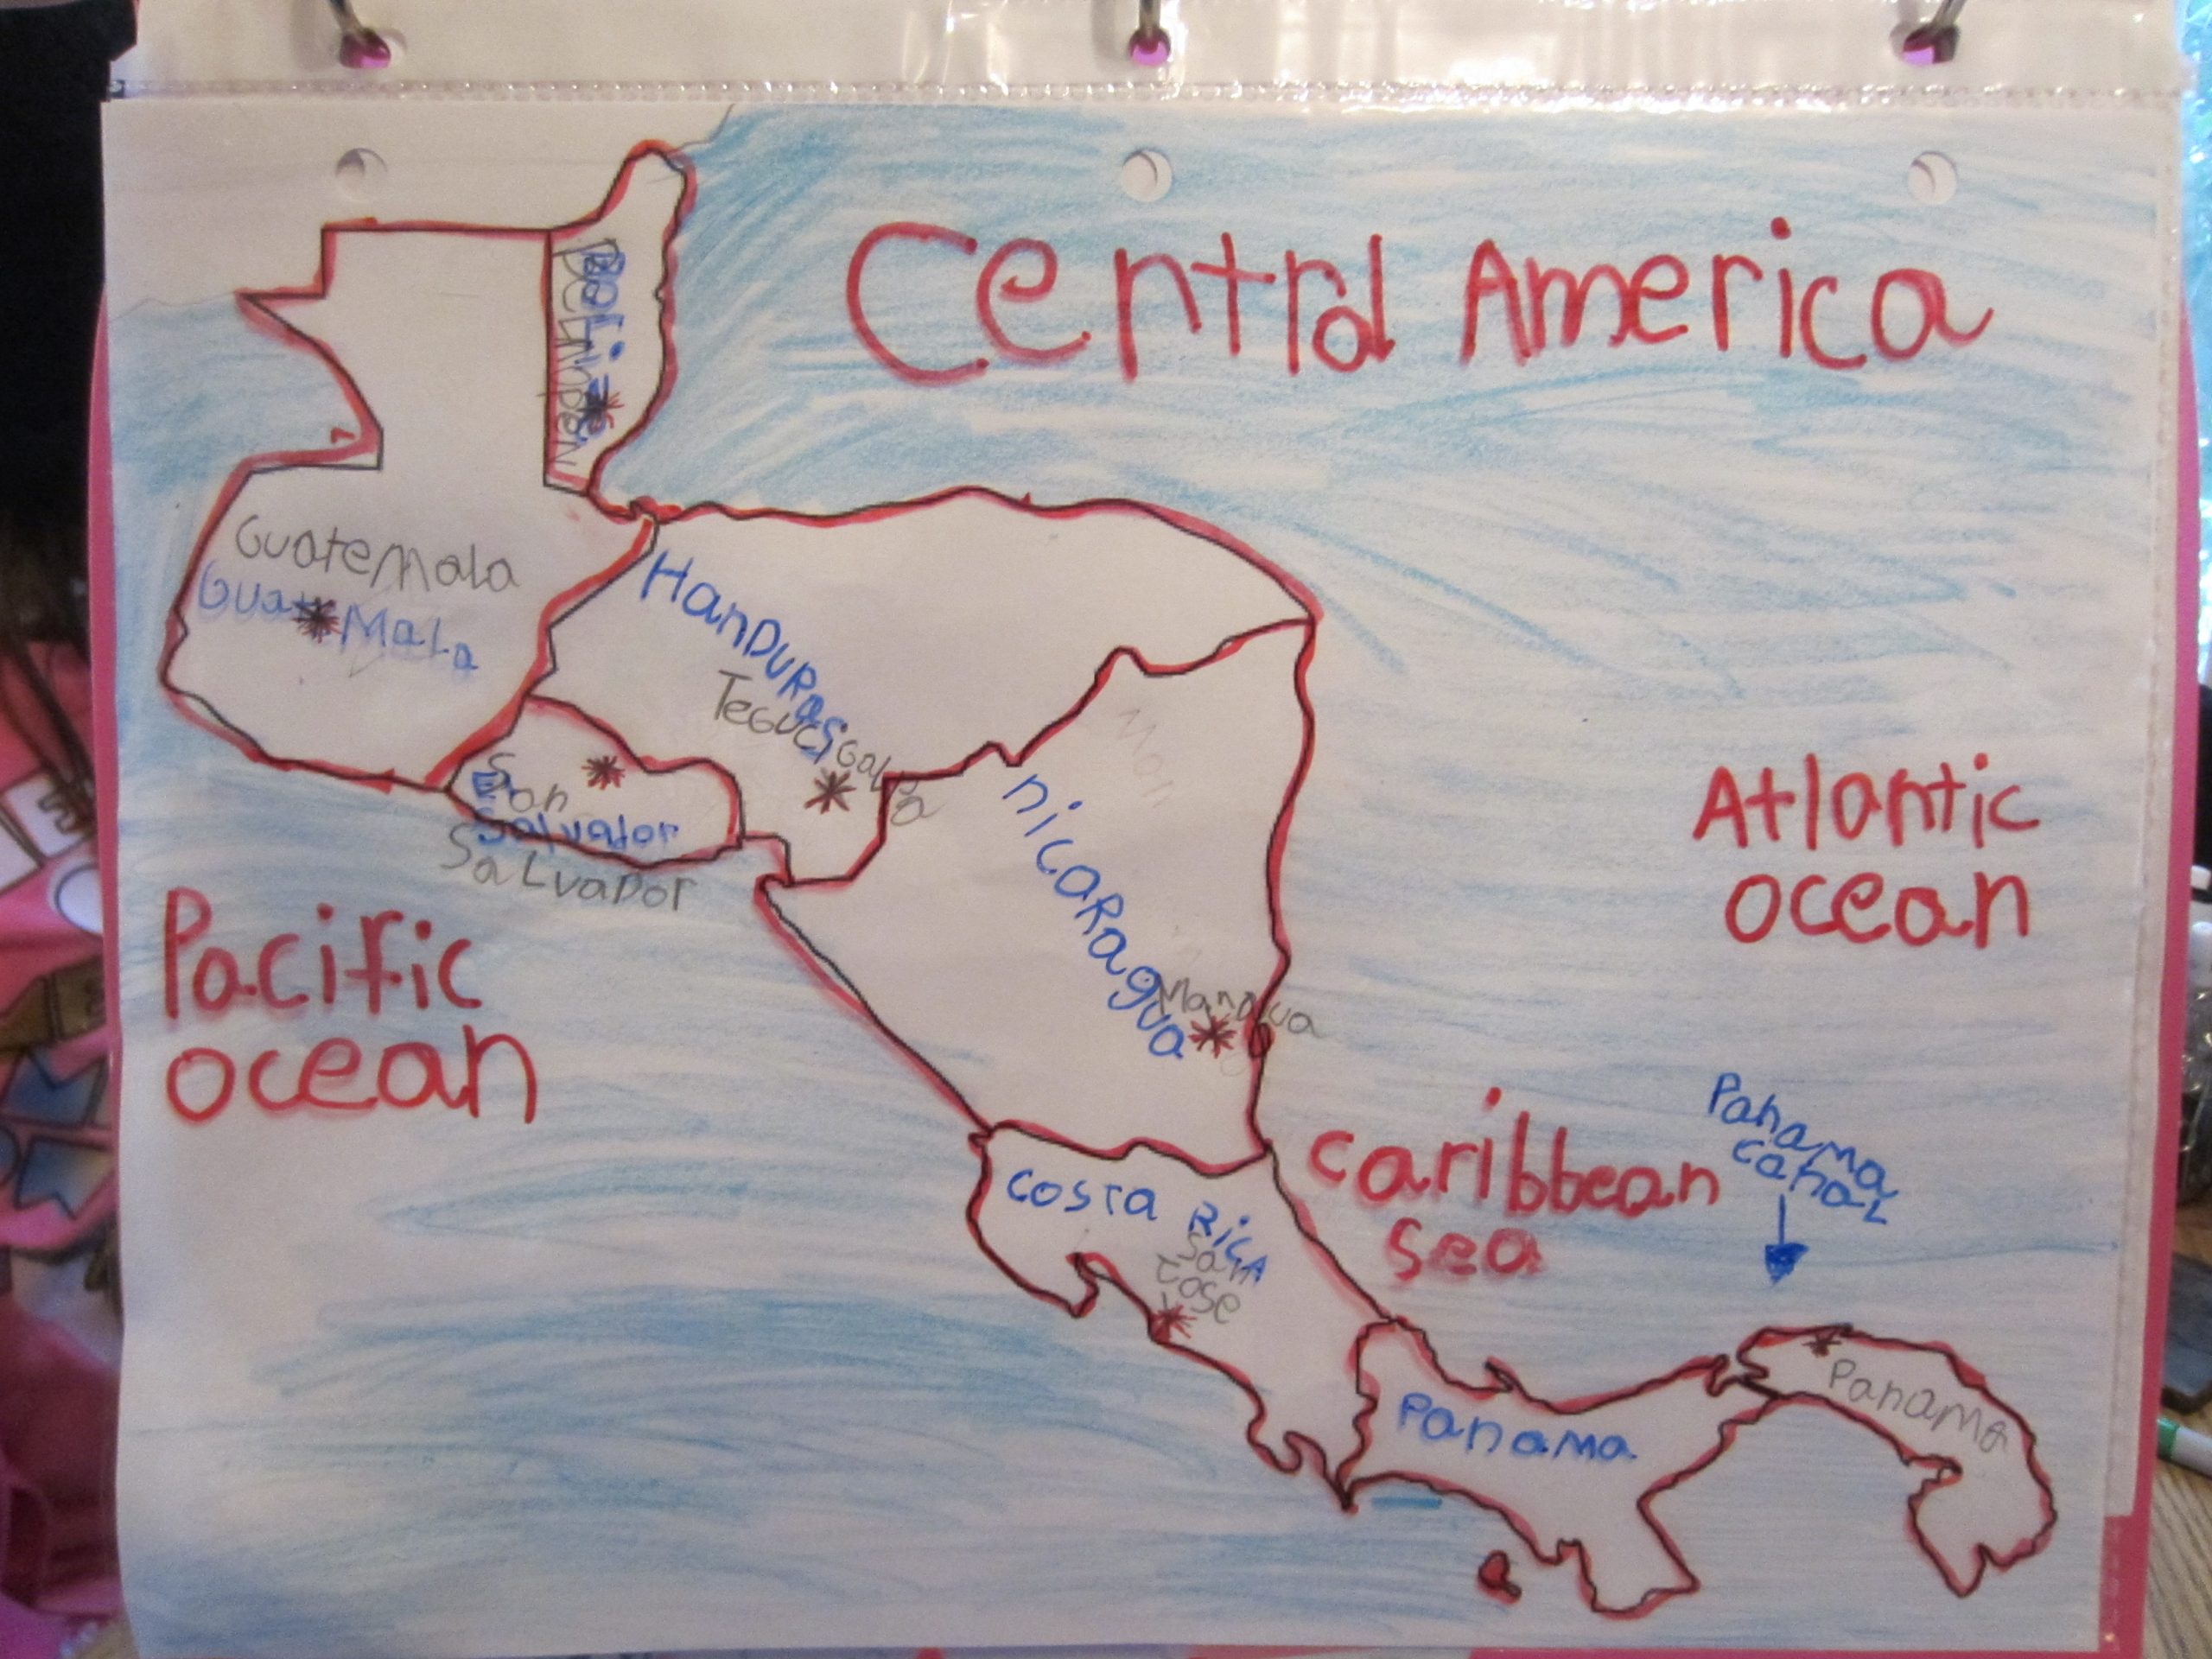 Central America
Belize
Guatemala
Guatemala
Handuras
Tegucigalpa
San
El
Salvador
Salvador
nicaragua
Managua
Atlantic
ocean
Pacific
ocean
Costa Rica
San
Jose
caribbean
sea
Panama
canal
Panama
Panama